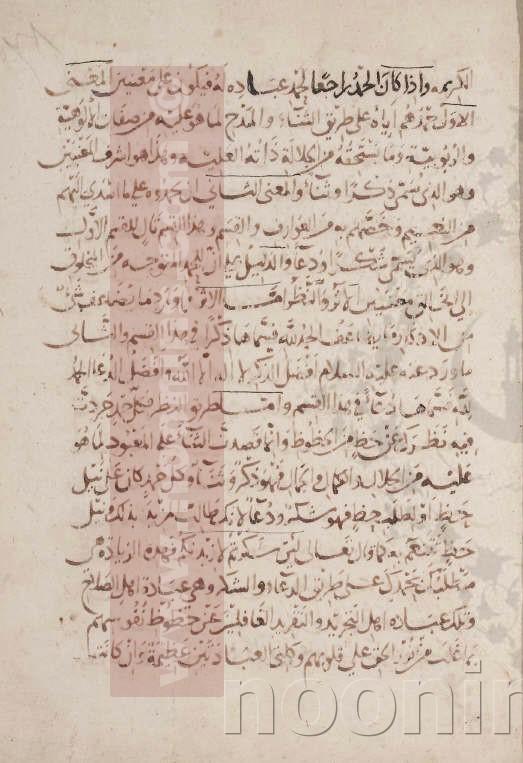 الكريمه واذا كان الحمد راجعا لحمد عباده له فيكون على معنيين المعنى
الاول حمدهم اياه على طريق الثناء والمدح لما هو عليه من صفات الالوهية
والربوبية وما يستحقه من جلالة ذاته العلية وهذا هو اشرف المعنيين
وهو الذي يسمى ذكرا وثناء والمعنى الثاني ان يحمدوه على ما ابتدى اليهم
من النعم وخصهم به من العوارف والقسم وهذا القسم تال للقسم الاول
وهو الذي يسمى شكرا ودعاء والدليل على ان الحمد المتوجه من المخلوق
الى الخالق معنيين الاثر والنظر اما الاثر فاورد ما نصه
من الاذكار الحمد لله فسماها ذكرا في هذا القسم والثاني
ما ورد عنه عليه السلام افضل الذكر لا اله الا الله وافضل الدعاء الحمد
لله فسماها دعاء في هذا القسم واما طريق النظر فكل حمد جردت
فيه نظرك عن حظ من الحظوظ وانما قصدت الثناء على المعبود لما هو
عليه من الجلال والكمال والجمال فهو ذكر وثناء وكل حمد كان على نيل
حظ او لطلب حظ فهو شكر ودعاء لانك طالب مزيد بذلك نيل
حظ قال تعالى لئن شكرتم لازيدنكم فهذه الزيادة هي
مطلبك بحمدك على طريق الدعاء والشكر وهي عبادة اهل الصلاح
وتلك عبادة اهل التجريد والتفريد الغافلين عن حظوظ نفوسهم
بما غلب من نور الحق على قلوبهم وكلتى العبادتين عظيمة وان كانت
noonin